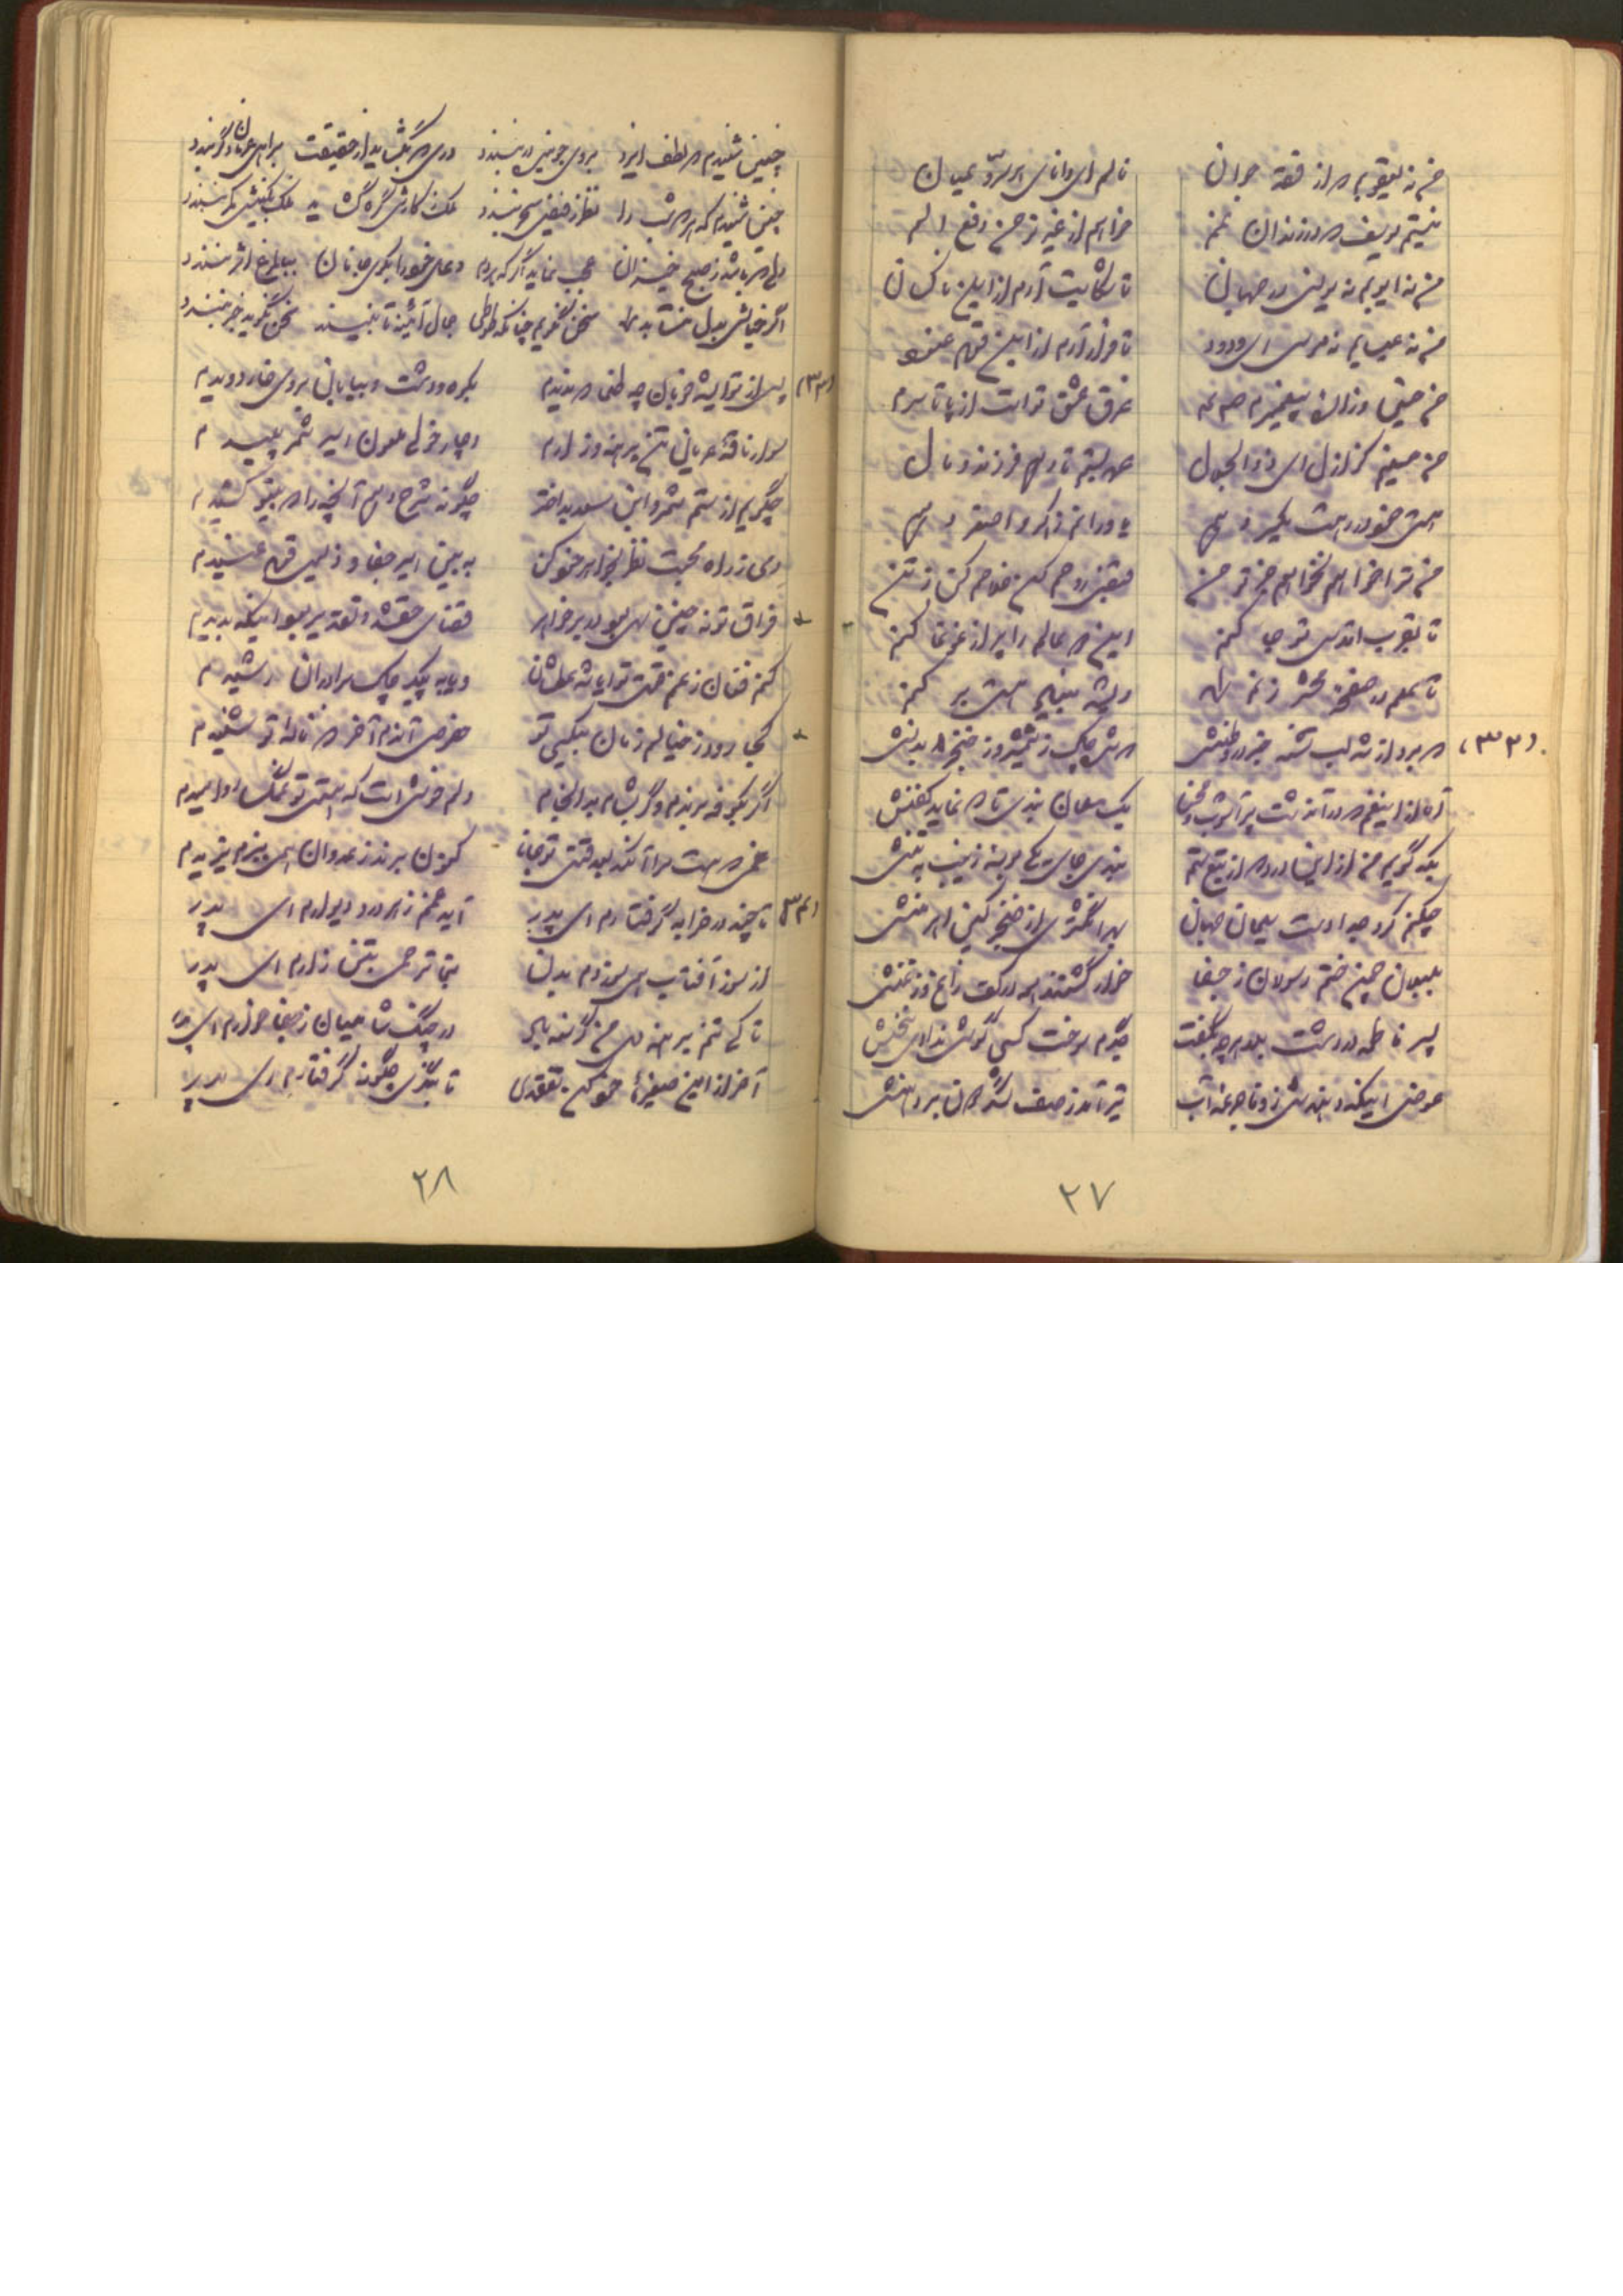 من نه یعقوبم که از قصه جوان نالم ای دانای هر سرّ و عیان
نیستم یوسف که در زندان غم خواهم از غیر تو من دفع الم
من نه ایوبم نه یونس در جهان تا شکایت آرم از این ناکسان
من نه عیسایم نه موسی ای ودود تا فرار آرم از این قوم عنود
من حسین و زادهٔ پیغمبرم غرق عشق توست از پا تا سرم
من حسینم کز ازل ای ذوالجلال عهد بستم تا دهم فرزند و مال
هستی خود در رهت یکسر دهم یاورانم ز اکبر و اصغر دهم
من ترا خواهم نخواهم جز تو من قبض روحم کن خلاصم کن ز تن
تا بقرب اقدس تو جا کنم این همه عالم را پر از غوغا کنم
تا بمعم در صف محشر ز نم کنم
(۳۲) که برد از شه لب تشنه خبر در وطنش که شد چاک ز شمشیر و ز خنجر بدنش
آه از این غم که در آن دشت پر آشوب و محن یک مسلمان نبدی تا که نماید کفنش
بکه گویم من از این درد که از تیغ ستم نبدی جای یکی بوسه زینب به تنش
چکنم کرد جدا دست سلیمان جهان بهر انگشتری از خنجر کین اهرمنش
بلبلان چمن ختم رسولان ز جفا خوار گشتند همه در کف زاغ و زغنش
پسر فاطمه در دشت بلا هر چه بگفت جگرم سوخت کسی گوش ندادی سخنش
عوض اینکه دهندش ز وفا جرعه آب تیر آمد ز صف لشگر بر دهنش
۲۷
چنین شنیدم که لطف ایزد بروی جوینده در نبندد دری که بگشاید از حقیقت بر اهل عرفان دگر نبندد
چنین شنیدم که هر که شب را نظر ز فیض سحر نبندد ملک ز کارش گره گشاید فلک بکینش کمر نبندد
دلی که باشد ز صبح خیزان عجب نماید اگر که هر دم دعای خود را بکوی جانان ببال مرغ اثر نبندد
اگر خیالش بدل نیاید سخن نگویم چنانکه طوطی جمال آئینه تا نبیند سخن نگوید خبر نبندد
(۳۳) پس از تو ایشه خوبان چه ظلم که ندیدم بکوه و دشت و بیابان بروی خار دویدم
سوار ناقه عریان تن برهنه و زارم دچار خولی ملعون اسیر شمر پلیدم
چگویم از ستم شمر و ابن سعد بداختر چگونه شرح دهم آنچه را که بیتو کشیدم
دمی ز راه محبت نظر بخواهر خود کن به بین اسیر جفا و ذلیل قوم عنیدم
فراق تو نه چنین سهل بود در بر خواهر قضای حق شد و تقدیر بود اینکه بدیدم
کنم فغان ز غم قتلت ترا یا شه عطشان و یا به پیکر چاک برادران رشیدم
کجا رود ز خیالم زمان بیکسی تو خصوص آندم آخر که ناله تو شنیدم
اگر بکوفه برندم و گر بشام بد انجام دلم خوش است که هستی تو تکیه گاه امیدم
غمی که هست مرا آنکه بعد قتل تو جانا کنون برند ز عدوان همی ببزم یزیدم
(۳۴) تا چند در خرابه گرفتارم ای پدر آید غم ز هر در و دیوارم ای پدر
از سوز آفتاب همی سوزدم بدن بنما ترحمی بتن زارم ای پدر
تا کی تنم برهنه دل من گرسنه باید در چنگ شامیان ز جفا خوارم ای پدر
آخر از این صغیرهٔ خود کن تفقدی تا بنگری چگونه گرفتارم ای پدر
۲۸